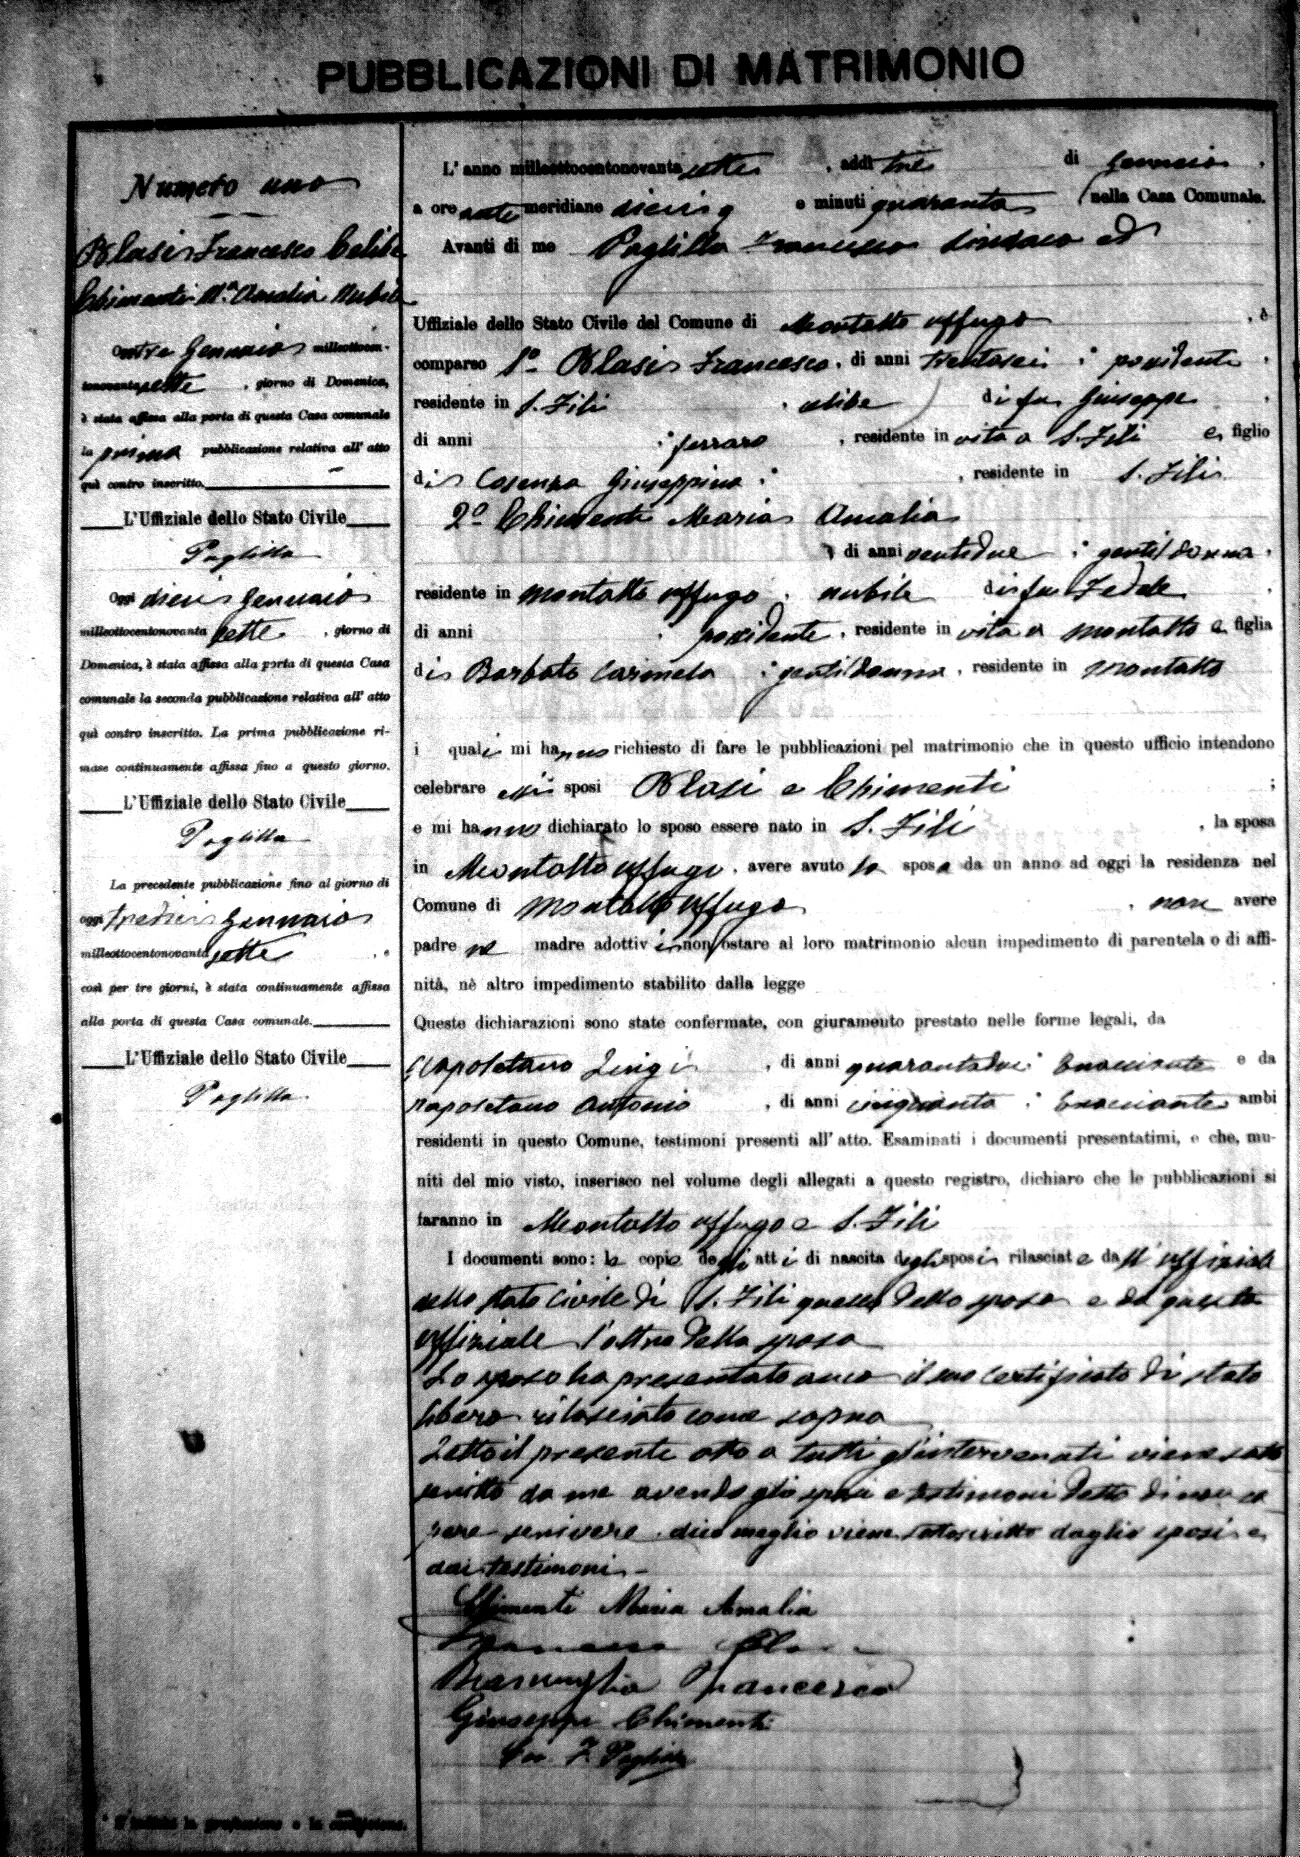 PUBBLICAZIONI DI MATRIMONIO
Numero uno
Blasi Francesco Celibe
Chimenti Ma Amalia Nubile
Oggi tre Gennaio milleottocen-
tonovantasette, giorno di Domenica,
è stata affissa alla porta di questa Casa comunale
la prima pubblicazione relativa all' atto
quì contro inscritto.
L'Uffiziale dello Stato Civile
Paglilla
Oggi dieci Gennaio
milleottocentonovanta sette, giorno di
Domenica, è stata affissa alla porta di questa Casa
comunale la seconda pubblicazione relativa all' atto
quì contro inscritto. La prima pubblicazione ri-
mase continuamente affissa fino a questo giorno.
L'Uffiziale dello Stato Civile
Paglilla
La precedente pubblicazione fino al giorno di
oggi tredici Gennaio
milleottocentonovanta sette, e
così per tre giorni, è stata continuamente affissa
alla porta di questa Casa comunale.
L'Uffiziale dello Stato Civile
Paglilla
L' anno milleottocentonovanta sette, addì tre di Gennaio,
a ore anti meridiane dieci e minuti quaranta nella Casa Comunale.
Avanti di me Paglilla Francesco Sindaco ed
Uffiziale dello Stato Civile del Comune di Montalto Uffugo, è
comparso 1o Blasi Francesco, di anni trentasei, possidente,
residente in S. Fili, celibe di fu Giuseppe,
di anni ferraro, residente in vita a S. Fili e figlio
di Cosenza Giuseppina, residente in S. Fili
2o Chimenti Maria Amalia
, di anni ventidue, gentildonna,
residente in Montalto Uffugo, nubile di fu Fedele,
di anni possidente, residente in vita a Montalto e figlia
di Barbato Carmela gentildonna, residente in Montalto
i quali mi hanno richiesto di fare le pubblicazioni pel matrimonio che in questo ufficio intendono
celebrare essi sposi Blasi e Chimenti ;
e mi hanno dichiarato lo sposo essere nato in S. Fili, la sposa
in Montalto Uffugo, avere avuto la sposa da un anno ad oggi la residenza nel
Comune di Montalto Uffugo, non avere
padre ne madre adottivi non ostare al loro matrimonio alcun impedimento di parentela o di affi-
nità, nè altro impedimento stabilito dalla legge
Queste dichiarazioni sono state confermate, con giuramento prestato nelle forme legali, da
Napoletano Luigi, di anni quarantadue, bracciante e da
Napoletano Antonio, di anni cinquanta, bracciante ambi
residenti in questo Comune, testimoni presenti all' atto. Esaminati i documenti presentatimi, e che, mu-
niti del mio visto, inserisco nel volume degli allegati a questo registro, dichiaro che le pubblicazioni si
faranno in Montalto Uffugo e S. Fili
I documenti sono: le copie degli atti di nascita degli sposi rilasciate dall' uffiziale
dello stato Civile di S. Fili quella dello sposo e da questo
uffiziale l'altra della sposa
Lo sposo ha presentato anco il suo certificato di stato
libero rilasciato come sopra
Letto il presente atto a tutti gl'intervenuti viene sotto
scritto da me avendo gli sposi e testimoni detto di non sa
pere scrivere, dico meglio viene sottoscritto dagli sposi e
dai testimoni
Chimenti Maria Amalia
Francesco Blasi
Francesco
Giuseppe Chimenti
F. Paglilla
* Si indichi la professione o la condizione.